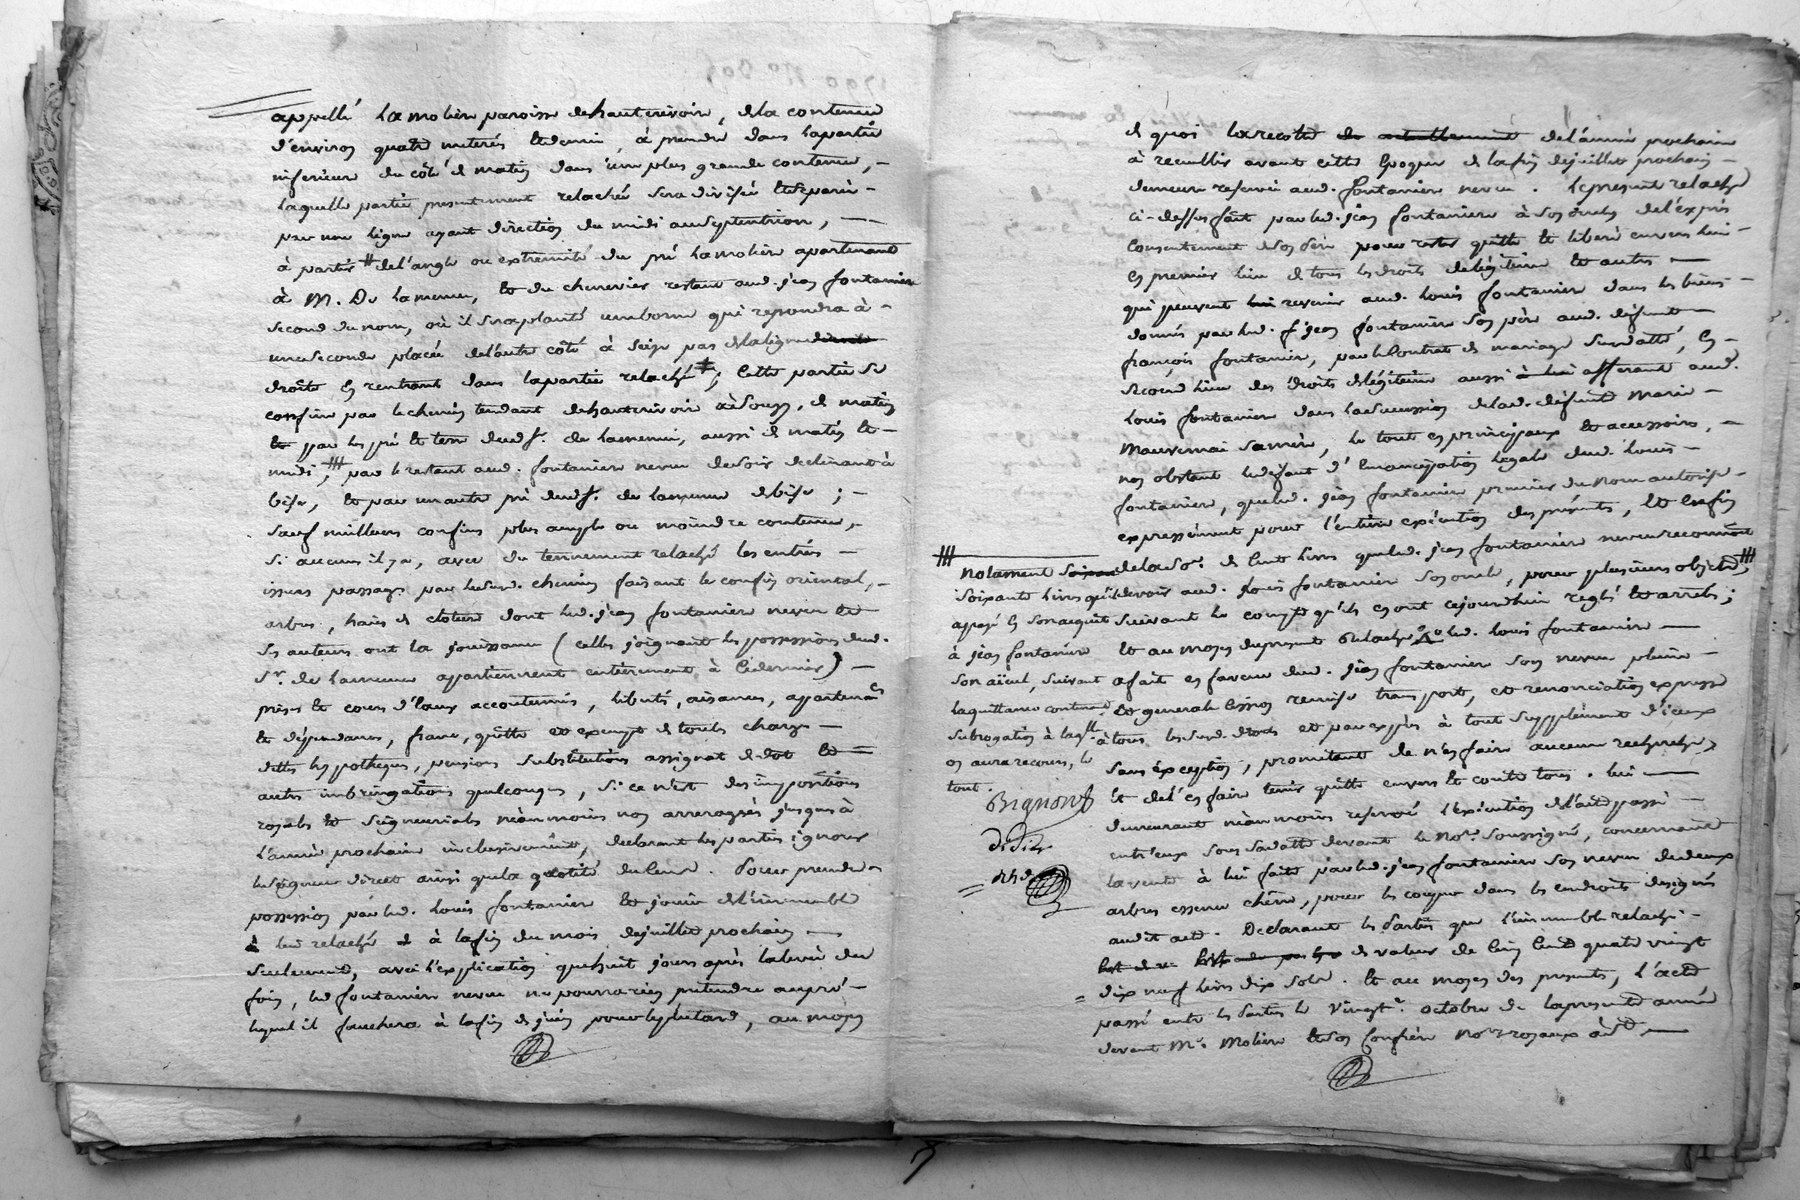 appellé La moliere paroisse de hauterivoir, de la contenue
d'environ quatre meterés et demie, à prendre dans la partie
inferieur du côté de matin dans une plus grande contenue,
laquelle partie presentement relachée sera divisée et separée
par une ligne ayant direction du midi au septentrion,
à partir # de l'angle ou extremité du pré La moliere apartenant
à M. De Lamenue, et du chenevier restant aud. jean fontanier
second du nom, où il sera planté une borne qui repondra à
une seconde placée de l'autre côté à seize pas de la ligne
droite en rentrant dans la partie relaché ‡; Cette partie se
confine par le chemin tendant de hauterivoir à Souzy, de matin
et par les pré et terre dud. Sr. de Lamenue, aussi de matin et
midi, ### par le restant aud. fontanier neveu de soir declinant à
bise, et par un autre pré dud. Sr. de Lamenue de bise;
sauf meilleurs confins plus ample ou moindre contenue,
si aucuns il y a, avec du tennement relaché les entrées
issues passage par le susd. chemin faisant le confin oriental,
arbres, haies et clotures dont led. jean fontanier neveu et
ses auteurs ont la jouissance (celles joignant les possessions dud.
Sr. de Lamenue appartiennent entierement à ce dernier)
prises et cours d'eaux accoutumés, libertés, aisances, appartenances
et dépendances, franc, quitte et exempt de toutes charges
dettes hypotheques, pensions substitutions assignat de dot et
autres imbringations quelconques, si ce n'est des impositions
royales et seigneuriales néanmoins non arreragées jusques à
l'année prochaine inclusivement, declarant les parties ignorer
le seigneur direct ainsi que la quotité du cens. Pour prendre
possession par led. Louis fontanier et jouir de l'immeuble
à lui relaché à la fin du mois de juillet prochain
seulement, avec l'explication que huit jours après la levée du
foin, led. fontanier neveu ne pourra rien pretendre au pré
lequel il fauchera à la fin de juin pour le plutard, au moyen
de quoi la recolte de l'année prochaine
à recueillir avant cette Epoque de la fin de juillet prochain
demeure reservée aud. fontanier neveu. Le present relaché
ci-dessus fait par led. jean fontanier à son oncle de l'exprès
consentement de son père pour rester quitte et liberé envers lui
en premier lieu de tous les droits de légitime et autres
qui peuvent revenir aud. Louis fontanier dans les biens
donnés par led. f. jean fontanier son père aud. défunt
françois fontanier, par le Contrat de mariage susdatté, En
second lieu des droits de légitime aussi afferant aud.
Louis fontanier dans la succession de lad. défunte Marie
Mauvernai sa mère, le tout en principaux et accessoires,
non obstant le défaut d'Emancipation legale dud. Louis
fontanier, que led. jean fontanier premier du nom autorise
expressément pour l'entiere exécution des présentes, Et Enfin
### notament de la So.e de Cent livres que led. jean fontanier neveu reconnoit ###
soixante livres qu'il devoir aud. Louis fontanier son oncle, pour plusieurs objets
apayé en son acquit suivant le compte qu'ils en ont cejourdhui reglé et arrêté;
à jean fontanier et au moyen du present relaché led. Louis fontanier
son aïeul, suivant a fait en faveur dud. jean fontanier son neveu pleine
la quittance contenant et generale Cession remise transport, et renonciation expresse
subrogation à laqlle à tous les sud. droits et par exprès à tout supplément d'iceux
on aura recours, le sans exception, promettant de n'en faire aucune recherche,
tout. Et de l'en faire tenir quitte envers et contre tous. lui
Bignon
demeurant néanmoins reservé l'exécution de l'acte passé
didier
entr'eux sous sa datte devant le Nore. Soussigné, concernant
la vente à lui faite par led. jean fontanier son neveu de deux
arbres essence chêne, pour les couper dans les endroits designés
audit acte. Declarant les Parties que l'immeuble relaché
de valeur de Cinq Cent quatre vingt
dix neuf livres dix sols. Et au moyen des presentes, l'acte
passé entre les Parties le Vingt octobre de la presente année
devant Me. Moliere et son Confrère Nores royaux